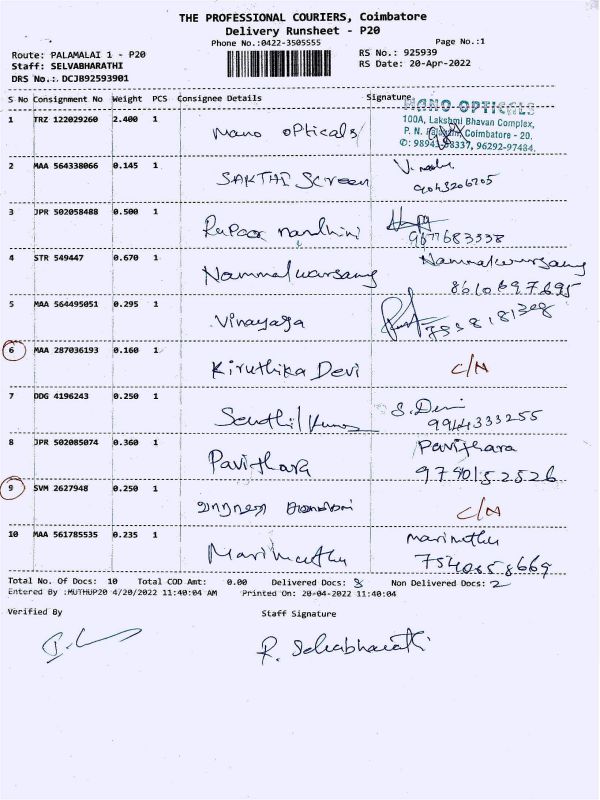 THE PROFESSIONAL COURIERS, Coimbatore
Delivery Runsheet - P20
Phone No.:0422-3505555
Page No.:1
Route: PALAMALAI 1 - P20
RS No.: 925939
Staff: SELVABHARATHI
RS Date: 20-Apr-2022
DRS No.: DCJB92593901
S No Consignment No Weight PCS Consignee Details Signature
MANO OPTICALS
100A, Lakshmi Bhavan Complex,
P. N. Coimbatore - 20.
96292-97484.
1 TRZ 122029260 2.400 1 Mano opticals
2 MAA 564338066 0.145 1 SAKTHI Screen
3 JPR 502058488 0.500 1 Rupaa nandhini
9677683338
4 STR 549447 0.670 1 Nammalwarsamy Nammalwarsamy
8610697695
5 MAA 564495051 0.295 1 Vinayaga
6 MAA 287036193 0.160 1 Kiruthika Devi C/N
7 DDG 4196243 0.250 1 Senthil Kumar S. Devi
9944333255
8 JPR 502085074 0.360 1 Pavithara Pavithara
9740152526
9 SVM 2627948 0.250 1 C/N
10 MAA 561785535 0.235 1 Marimuthu marimuthu
Total No. Of Docs: 10 Total COD Amt: 0.00 Delivered Docs: 8 Non Delivered Docs: 2
Entered By :MUTHUP20 4/20/2022 11:40:04 AM Printed On: 20-04-2022 11:40:04
Verified By
Staff Signature
R. Selvabharathi